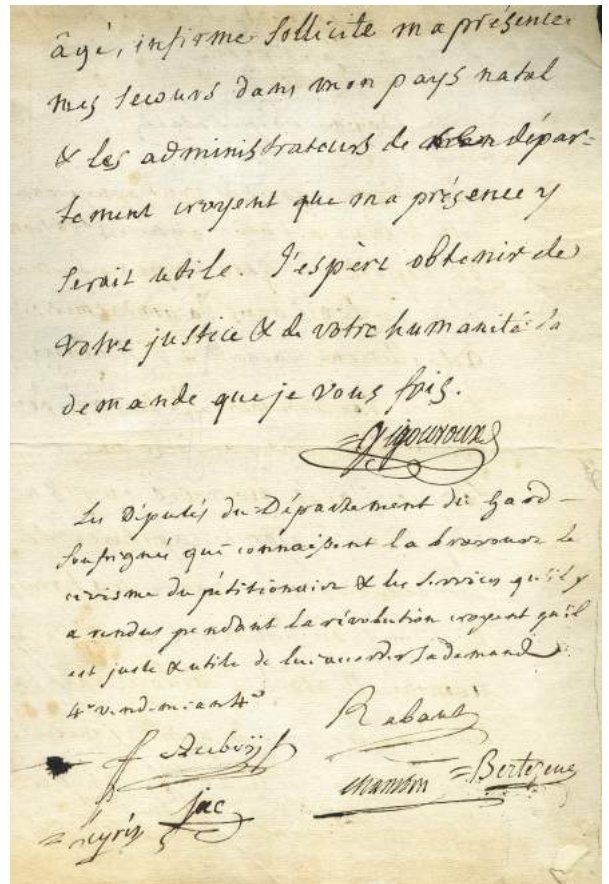 âgé, infirme sollicite ma présence
mes secours dans mon pays natal
& les administrateurs de mon dépar=
tement croyent que ma présence y
serait utile. J'espère obtenir de
votre justice & de votre humanité la
demande que je vous fais.
=Vigouroux
Les Députés du Département du Gard
soussignés qui connaissent la bravoure le
civisme du pétitionnaire & les services qu'il y
a rendus pendant la révolution croyent qu'il
est juste & utile de lui accorder sa demande
4e vendemian 4e
Rabaut
Aubry
Chambon =Bertezene
Jac
=Leyris